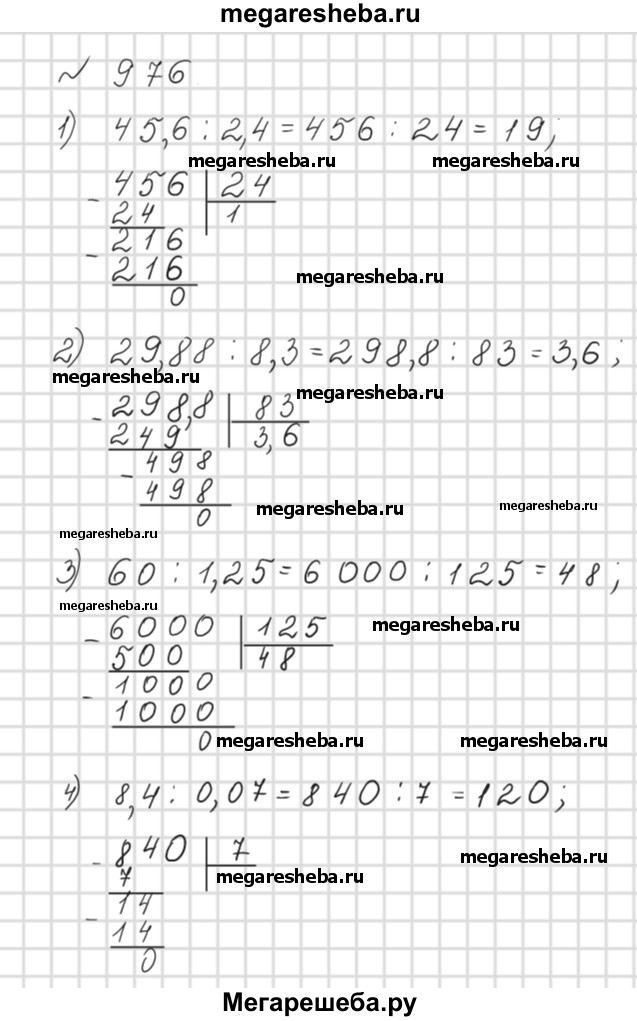 megaresheba.ru
№ 976
1) 45,6 : 2,4 = 456 : 24 = 19;
megaresheba.ru megaresheba.ru
- 456 | 24
24 1
- 216
216 megaresheba.ru
0
2) 29,88 : 8,3 = 298,8 : 83 = 3,6;
megaresheba.ru megaresheba.ru
- 298,8 | 83
249 3,6
- 498
498 megaresheba.ru megaresheba.ru
0
megaresheba.ru
3) 60 : 1,25 = 6 000 : 125 = 48;
megaresheba.ru
- 6000 | 125 megaresheba.ru
500 48
- 1000
1000
0 megaresheba.ru megaresheba.ru
4) 8,4 : 0,07 = 840 : 7 = 120;
- 840 | 7 megaresheba.ru
7 megaresheba.ru
- 14
14
0
Мегарешеба.ру